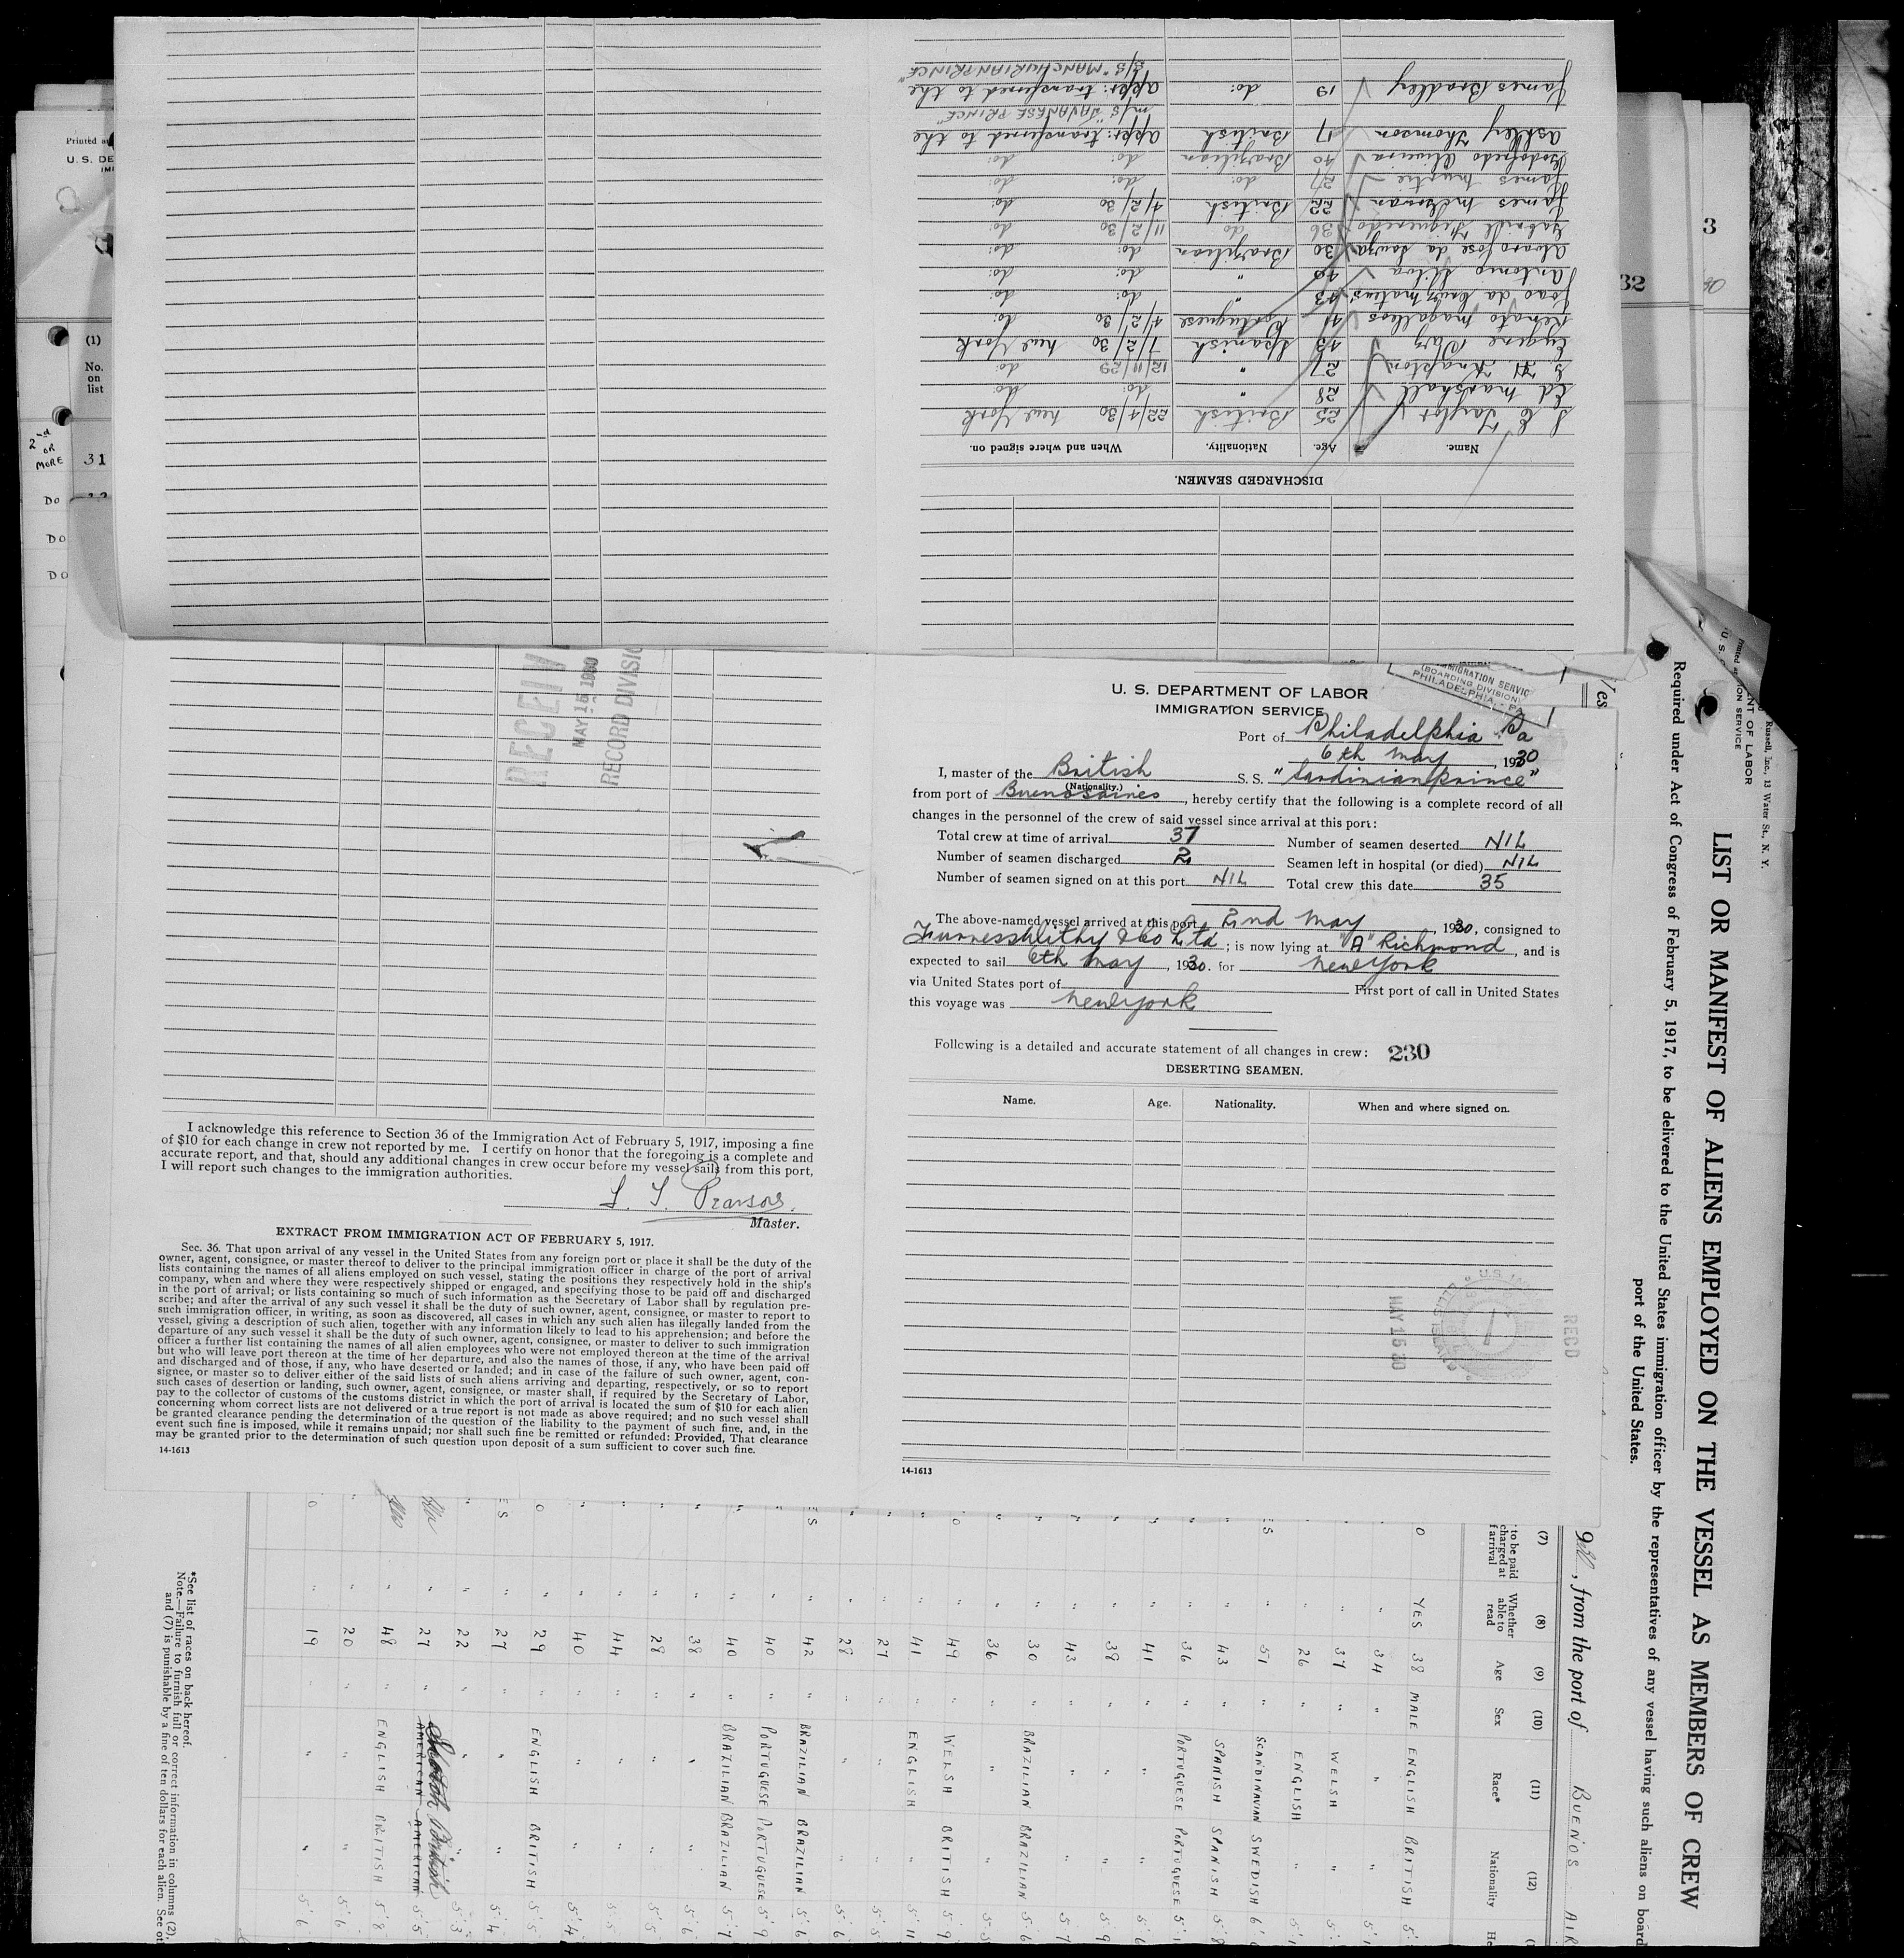 Printed
U. S. DE
(1)
No.
on
list
2nd
OR
MORE
31
Do
Do
Do
3
32
DISCHARGED SEAMEN.
Name. Age. Nationality. When and where signed on.
J C Taylor 25 British 22/4/30 New York
Ed Marshall 28 " do: do:
27 " 12/11/29 do:
Eugene 43 Spanish 7/2/30 New York
Renato Magalhos 41 Portuguese 4/2/30 do:
Joao da Cruz Matins 43 " do: do:
Antonio Silva 49 " do: do:
Alvaro Jose da Souza 30 Brazilian do: do:
Gabriell Figueredo 36 do 11/2/30 do:
James 22 British 4/2/30 do:
James 27 do: do: do:
Godofredo Oliveira 40 Brazilian do: do:
Ashley Thomson 17 British appr: transferred to the
M/S "JAVANESE PRINCE"
James Bradley 19 do: appr: transferred to the
S/S "MANCHURIAN PRINCE"
RECEIV
MAY 15 1930
RECORD DIVISIO
IMMIGRATION SERVIC
(BOARDING DIVISION)
PHILADELPHIA, PA
U. S. DEPARTMENT OF LABOR
IMMIGRATION SERVICE
Port of Philadelphia Pa
6th May, 1930
I, master of the British S. S. "Sardinian Prince"
(Nationality.)
from port of Buenos Aires, hereby certify that the following is a complete record of all
changes in the personnel of the crew of said vessel since arrival at this port:
Total crew at time of arrival 37 Number of seamen deserted NIL
Number of seamen discharged 2 Seamen left in hospital (or died) NIL
Number of seamen signed on at this port NIL Total crew this date 35
The above-named vessel arrived at this port 2nd May, 1930, consigned to
Furness Withy & Co Ltd; is now lying at "A" Richmond, and is
expected to sail 6th May, 1930. for New York
via United States port of First port of call in United States
this voyage was New York
Following is a detailed and accurate statement of all changes in crew: 230
DESERTING SEAMEN.
Name. Age. Nationality. When and where signed on.
MAY 15 30
REC'D
14-1613
I acknowledge this reference to Section 36 of the Immigration Act of February 5, 1917, imposing a fine
of $10 for each change in crew not reported by me. I certify on honor that the foregoing is a complete and
accurate report, and that, should any additional changes in crew occur before my vessel sails from this port,
I will report such changes to the immigration authorities.
Master.
EXTRACT FROM IMMIGRATION ACT OF FEBRUARY 5, 1917.
Sec. 36. That upon arrival of any vessel in the United States from any foreign port or place it shall be the duty of the
owner, agent, consignee, or master thereof to deliver to the principal immigration officer in charge of the port of arrival
lists containing the names of all aliens employed on such vessel, stating the positions they respectively hold in the ship's
company, when and where they were respectively shipped or engaged, and specifying those to be paid off and discharged
in the port of arrival; or lists containing so much of such information as the Secretary of Labor shall by regulation pre-
scribe; and after the arrival of any such vessel it shall be the duty of such owner, agent, consignee, or master to report to
such immigration officer, in writing, as soon as discovered, all cases in which any such alien has illegally landed from the
vessel, giving a description of such alien, together with any information likely to lead to his apprehension; and before the
departure of any such vessel it shall be the duty of such owner, agent, consignee, or master to deliver to such immigration
officer a further list containing the names of all alien employees who were not employed thereon at the time of the arrival
but who will leave port thereon at the time of her departure, and also the names of those, if any, who have been paid off
and discharged and of those, if any, who have deserted or landed; and in case of the failure of such owner, agent, con-
signee, or master so to deliver either of the said lists of such aliens arriving and departing, respectively, or so to report
such cases of desertion or landing, such owner, agent, consignee, or master shall, if required by the Secretary of Labor,
pay to the collector of customs of the customs district in which the port of arrival is located the sum of $10 for each alien
concerning whom correct lists are not delivered or a true report is not made as above required; and no such vessel shall
be granted clearance pending the determination of the question of the liability to the payment of such fine, and, in the
event such fine is imposed, while it remains unpaid; nor shall such fine be remitted or refunded: Provided, That clearance
may be granted prior to the determination of such question upon deposit of a sum sufficient to cover such fine.
14-1613
Russell, Inc., 13 Water St., N. Y.
LIST OR MANIFEST OF ALIENS EMPLOYED ON THE VESSEL AS MEMBERS OF CREW
Required under Act of Congress of February 5, 1917, to be delivered to the United States immigration officer by the representatives of any vessel having such aliens on board
port of the United States.
, from the port of BUENOS AIR
(7) (8) (9) (10) (11) (12)
to be paid
charged at
f arrival
Whether
able to
read
Age
Sex
Race*
Nationality
He
YES 38 MALE ENGLISH BRITISH 5'
" 34 " " " 5'1
" 37 " WELSH " 5'
" 26 " ENGLISH " 5'1
" 51 " SCANDINAVIAN SWEDISH 6'0
" 43 " SPANISH SPANISH 5'8
" 36 " PORTUGUESE PORTUGUESE 5'1
" 41 " " " 5'6
" 38 " " " 5'9
" 43 " " " 5'7
" 30 " BRAZILIAN BRAZILIAN 5'6
" 36 " " " 5'5
" 49 " WELSH BRITISH 5'9
" 41 " ENGLISH " 5'11
" 27 " " " 5'5
" 28 " " " 5'6
" 42 " BRAZILIAN BRAZILIAN 5'6
" 40 " PORTUGUESE PORTUGUESE 5'9
" 40 " BRAZILIAN BRAZILIAN 5'7
" 38 " " " 5'6
" 28 " " " 5'5
" 44 " " " 5'5
" 40 " " " 5'4
" 29 " ENGLISH BRITISH 5'5
" 27 " " " 5'4
" 22 " " " 5'3
" 27 " AMERICAN AMERICAN 5'5
Scotch British
" 48 " ENGLISH BRITISH 5'8
" 20 " " " 5'6
" 19 " " " 5'6
*See list of races on back hereof.
Note.—Failure to furnish full or correct information in columns (2),
and (7) is punishable by a fine of ten dollars for each alien. See ot